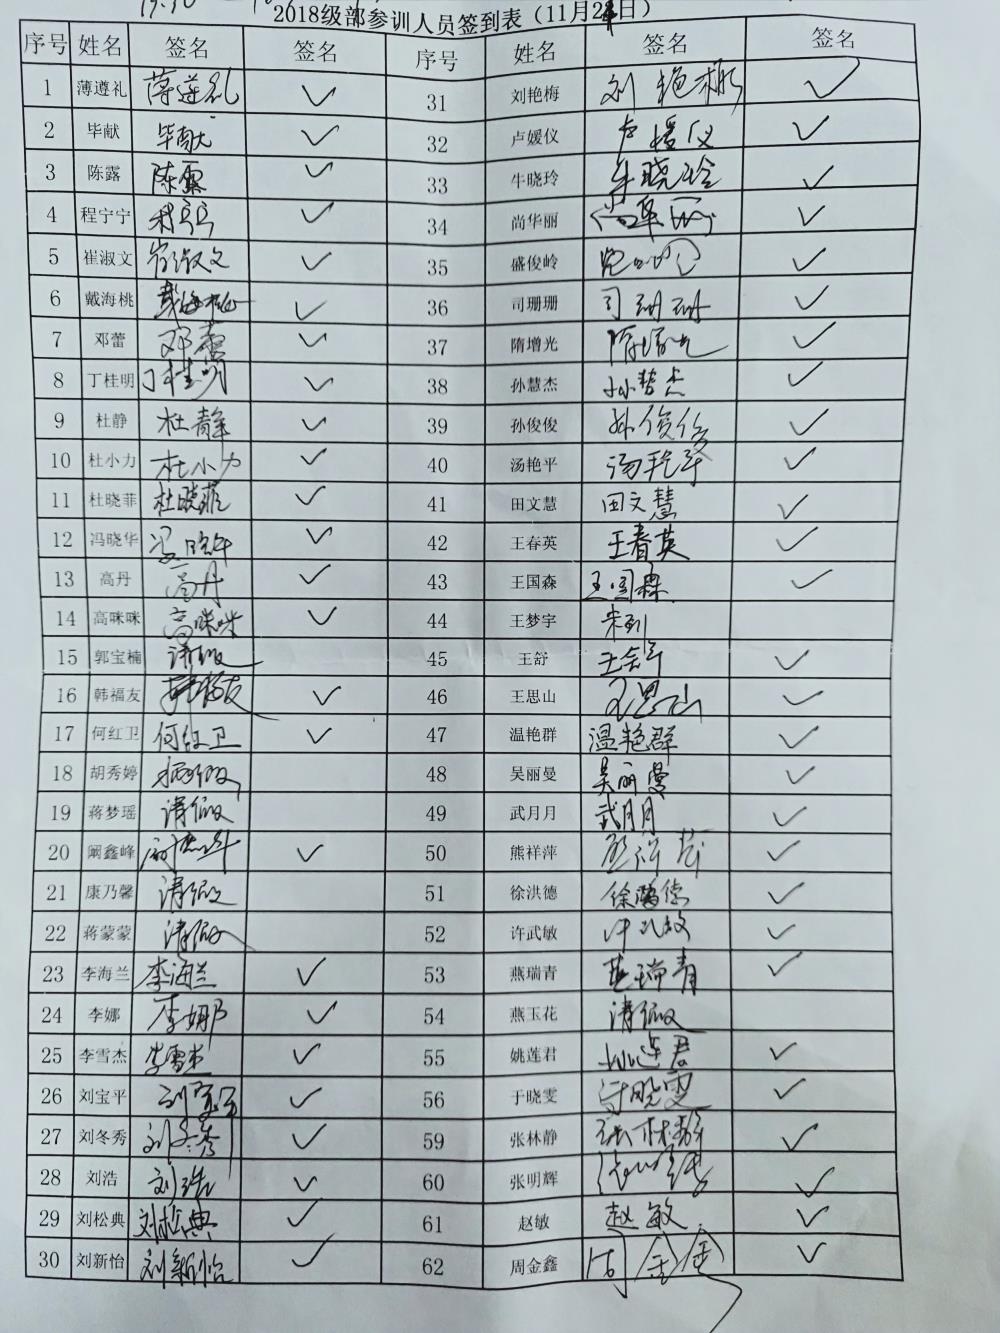 2018级部参训人员签到表（11月24日）
序号 姓名 签名 签名 序号 姓名 签名 签名
1 薄遵礼 薄遵礼 ✓ 31 刘艳梅 刘艳梅 ✓
2 毕献 毕献 ✓ 32 卢媛仪 卢媛仪 ✓
3 陈露 陈露 ✓ 33 牛晓玲 牛晓玲 ✓
4 程宁宁 程宁宁 ✓ 34 尚华丽 尚华丽 ✓
5 崔淑文 崔淑文 ✓ 35 盛俊岭 ✓
6 戴海桃 戴海桃 ✓ 36 司珊珊 司珊珊 ✓
7 邓蕾 邓蕾 ✓ 37 隋增光 隋增光 ✓
8 丁桂明 丁桂明 ✓ 38 孙慧杰 孙慧杰 ✓
9 杜静 杜静 ✓ 39 孙俊俊 孙俊俊 ✓
10 杜小力 杜小力 ✓ 40 汤艳平 汤艳平 ✓
11 杜晓菲 杜晓菲 ✓ 41 田文慧 田文慧 ✓
12 冯晓华 冯晓华 ✓ 42 王春英 王春英 ✓
13 高丹 高丹 ✓ 43 王国森 王国森 ✓
14 高咪咪 高咪咪 ✓ 44 王梦宇 未到
15 郭宝楠 请假 45 王舒 王舒 ✓
16 韩福友 韩福友 ✓ 46 王思山 王思山 ✓
17 何红卫 何红卫 ✓ 47 温艳群 温艳群 ✓
18 胡秀婷 病假 48 吴丽曼 吴丽曼 ✓
19 蒋梦瑶 请假 49 武月月 武月月 ✓
20 阚鑫峰 阚鑫峰 ✓ 50 熊祥萍 熊祥萍 ✓
21 康乃馨 请假 51 徐洪德 徐洪德 ✓
22 蒋蒙蒙 请假 52 许武敏 许武敏 ✓
23 李海兰 李海兰 ✓ 53 燕瑞青 燕瑞青 ✓
24 李娜 李娜 ✓ 54 燕玉花 请假
25 李雪杰 李雪杰 ✓ 55 姚莲君 姚莲君 ✓
26 刘宝平 刘宝平 ✓ 56 于晓雯 于晓雯 ✓
27 刘冬秀 刘冬秀 ✓ 59 张林静 张林静 ✓
28 刘浩 刘浩 ✓ 60 张明辉 张明辉 ✓
29 刘松典 刘松典 ✓ 61 赵敏 赵敏 ✓
30 刘新怡 刘新怡 ✓ 62 周金鑫 周金鑫 ✓